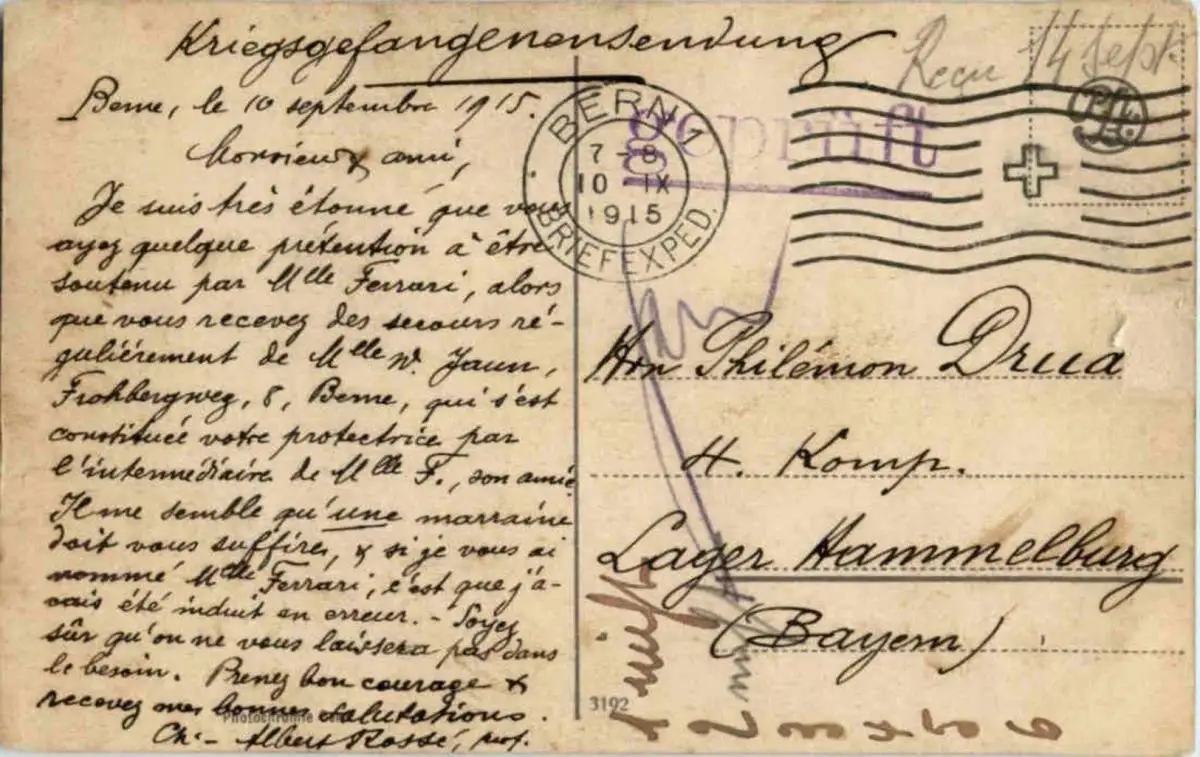 Kriegsgefangenensendung
Reçu 14 sept
Berne, le 10 septembre 1915.
Monsieur & ami,
Je suis très étonné que vous
ayez quelque prétention à être
soutenu par Mlle Ferrari, alors
que vous recevez des secours ré-
gulièrement de Mlle W. Jaun,
Frohbergweg, 8, Berne, qui s'est
constituée votre protectrice par
l'intermédiaire de Mlle F., son amie.
Il me semble qu'une marraine
doit vous suffire, & si je vous ai
nommé Mlle Ferrari, c'est que j'a-
vais été induit en erreur. - Soyez
sûr qu'on ne vous laissera pas dans
le besoin. Prenez bon courage &
recevez mes bonnes salutations.
Ch.- Albert Rossé, prof.
BERN 1
7-8
10 IX
1915
BRIEFEXPED.
geprüft
Hrn Philémon Drua
4. Komp.
Lager Hammelburg
(Bayern)
3192
1 2 3 4 5 6